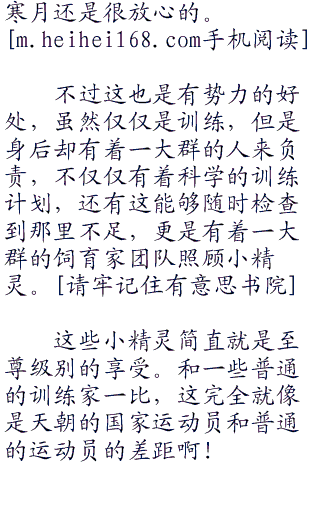 寒月还是很放心的。
[m.heihei168.com手机阅读]
不过这也是有势力的好
处，虽然仅仅是训练，但是
身后却有着一大群的人来负
责，不仅仅有着科学的训练
计划，还有这能够随时检查
到那里不足，更是有着一大
群的饲育家团队照顾小精
灵。[请牢记住有意思书院]
这些小精灵简直就是至
尊级别的享受。和一些普通
的训练家一比，这完全就像
是天朝的国家运动员和普通
的运动员的差距啊！